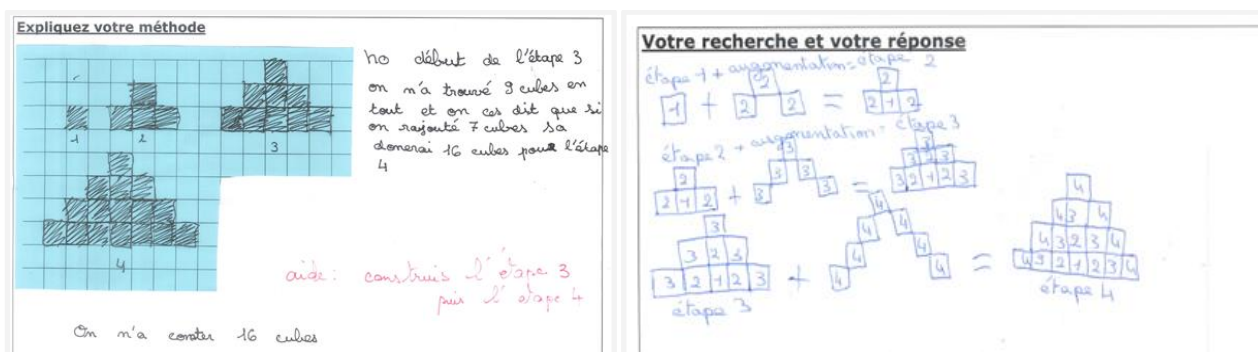 Expliquez votre méthode
1
2
3
4
no début de l'étape 3
on n'a trouvé 9 cubes en
tout et on ces dit que si
on rajouté 7 cubes sa
donerai 16 cubes pour l'étape
4
aide: construis l'étape 3
puis l'étape 4
On n'a conster 16 cubes
Votre recherche et votre réponse
étape 1 + augmentation = étape 2
1 + 2 2 2 = 2 2 1 2
étape 2 + augmentation = étape 3
2
2 1 2 + 3 3 3 3 3 = 3
3 2 3
3 2 1 2 3
3
3 2 3
3 2 1 2 3 + 4 4 4 4 4 4 4 =
étape 3
4
4 3 4
4 3 2 3 4
4 3 2 1 2 3 4
étape 4